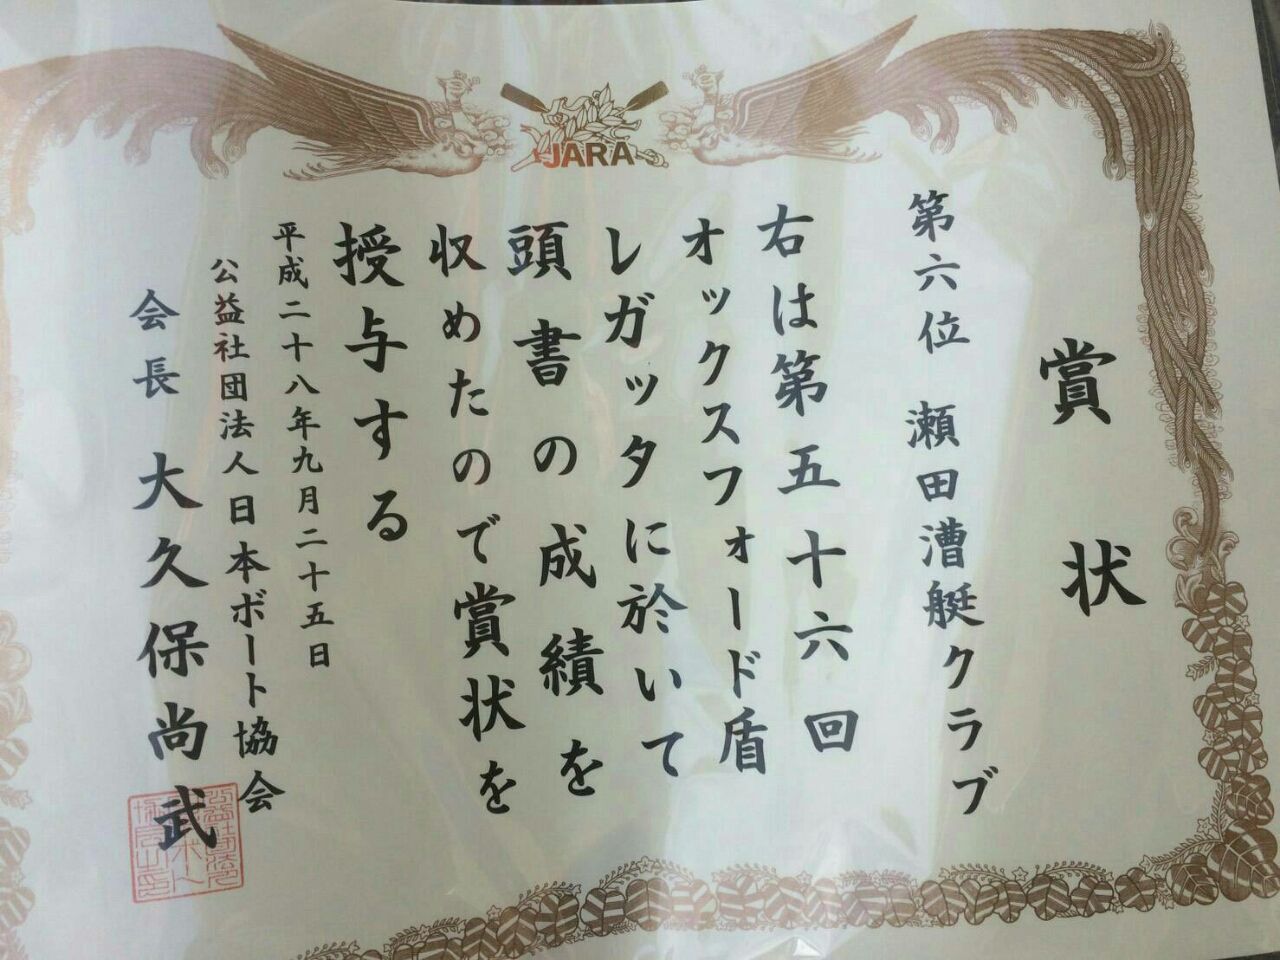 JARA
賞状
第六位 瀬田漕艇クラブ
右は第五十六回
オックスフォード盾
レガッタに於いて
頭書の成績を
収めたので賞状を
授与する
平成二十八年九月二十五日
公益社団法人日本ボート協会
会長 大久保尚武